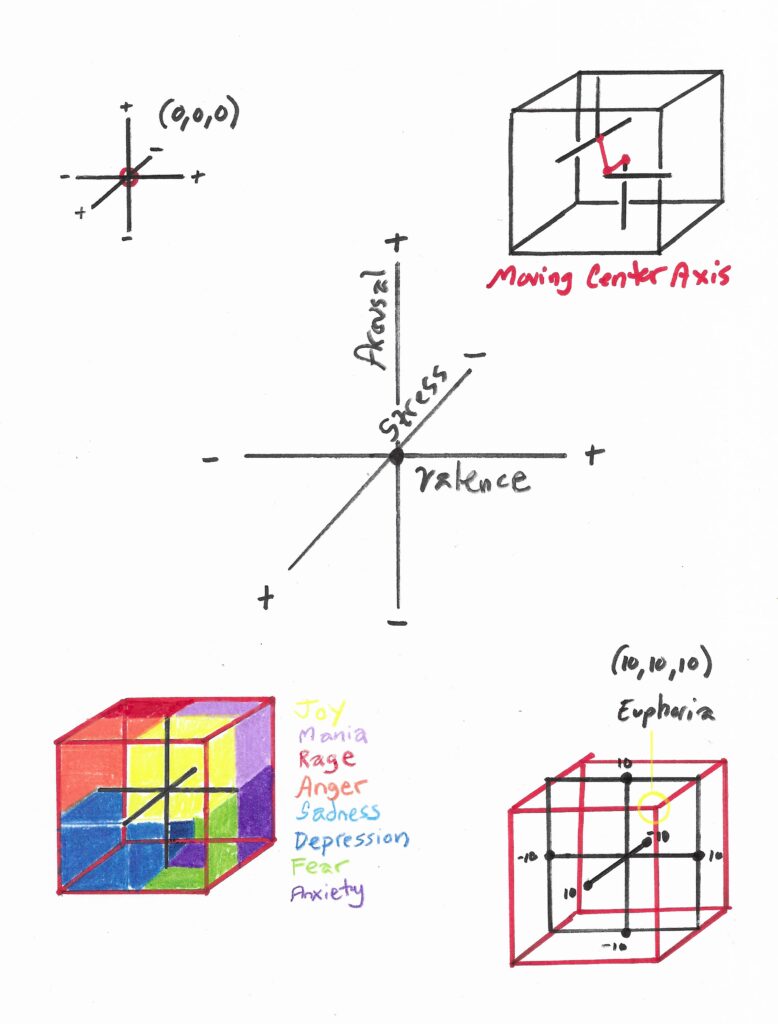 +
(0,0,0)
-
- +
+
-
Moving Center Axis
+
Arousal
-
Stress
- +
Valence
+
-
(10,10,10)
Euphoria
Joy
Mania
Rage
Anger
Sadness
Depression
Fear
Anxiety
10
-10
-10 10
10
-10